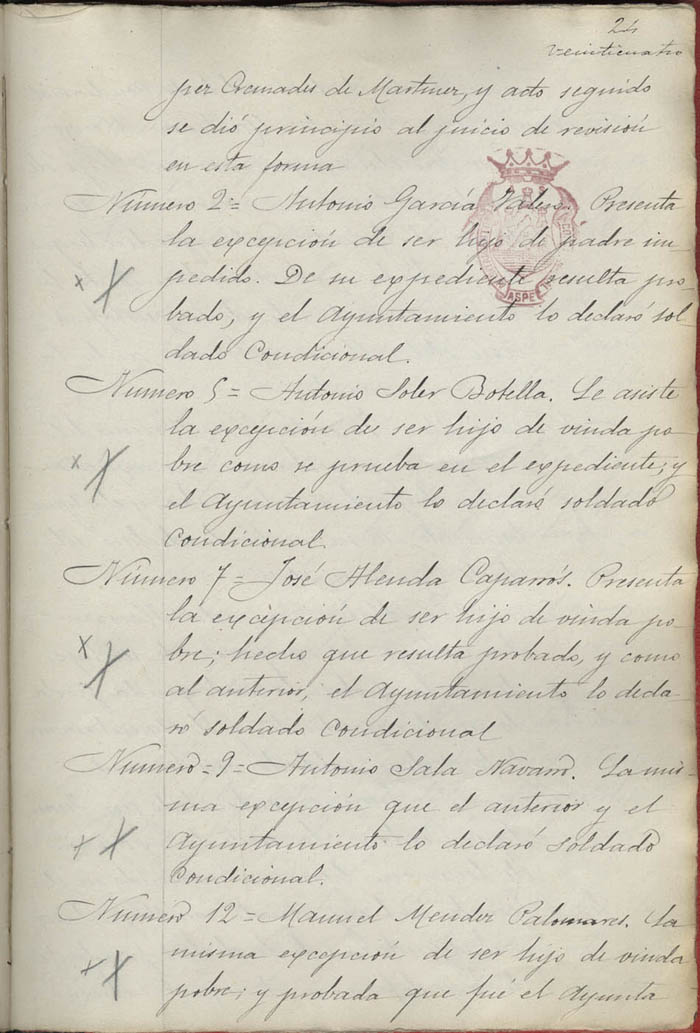 24
veinticuatro
per Cremades de Martinez, y acto seguido
se dió principio al juicio de revisión
en esta forma
Número 2= Antonio García. Presenta
la excepción de ser hijo de padre im-
pedido. De su expediente resulta pro-
bado, y el Ayuntamiento lo declaró sol
dado Condicional.
Número 5= Antonio Soler Botella. Le asiste
la excepción de ser hijo de viuda po-
bre como se prueba en el expediente; y
el Ayuntamiento lo declaró soldado
Condicional.
Número 7= José Alenda Caparrós. Presenta
la excepción de ser hijo de viuda po-
bre; hecho que resulta probado, y como
al anterior, el Ayuntamiento lo decla
ró soldado Condicional
Número=9= Antonio Sala Navarro. La mis-
ma excepción que el anterior y el
Ayuntamiento lo declaró soldado
Condicional.
Número 12= Manuel Mender Palomares. La
misma excepción de ser hijo de viuda
pobre; y probada que fué el Ayunta
ASPE